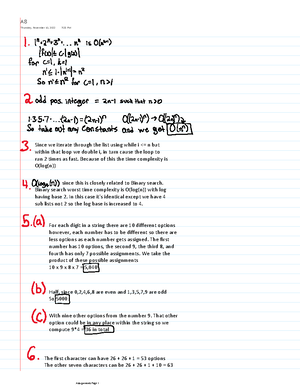 A8
1. 1² + 2² + 3² + ... n² is O(nⁿ⁺¹)
|f(x)| ≤ c|g(x)|
for c=1, k=1
So for c=1, n>1
2. odd pos. integer = 2n-1 such that n>0
1·3·5·7·...(2n-1) = (2n-1)ⁿ
So take out any constants and we get O(nⁿ)
3. Since we iterate through the list using while i <= n but
within that loop we double i, in turn cause the loop to
run 2 times as fast. Because of this the time complexity is
O(log(n))
4. O(log₄(n)) since this is closely related to Binary search.
(Binary search worst time complexity is O(log(n)) with log
having base 2. In this case it's identical except we have 4
sub lists not 2 so the log base is increased to 4.
5. (a) For each digit in a string there are 10 different options
however, each number has to be different so there are
less options as each number gets assigned. The first
number has 10 options, the second 9, the third 8, and
fourth has only 7 possible assignments. We take the
product of these possible assignments
10 x 9 x 8 x 7 = 5,040
(b) Half, since 0,2,4,6,8 are even and 1,3,5,7,9 are odd
So 5000
(c) With nine other options from the number 9. That other
option could be in any place within the string so we
compute 9*4 = 36 in total
6. The first character can have 26 + 26 + 1 = 53 options
The other seven characters can be 26 + 26 + 1 + 10 = 63